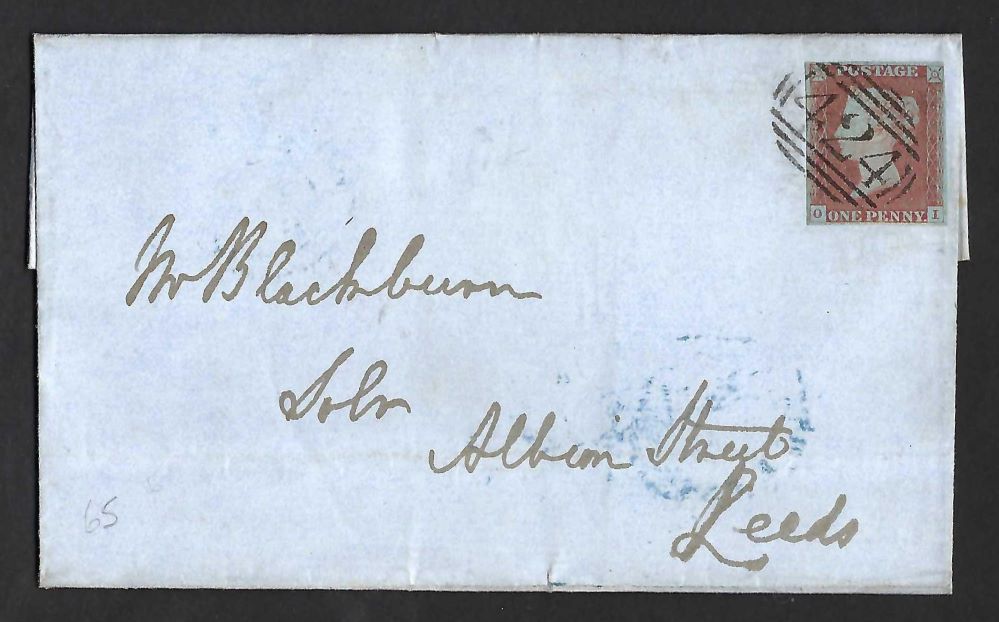 POSTAGE
424
O I
ONE PENNY.
Mr Blackburn
Solr
Albion Street
Leeds
65